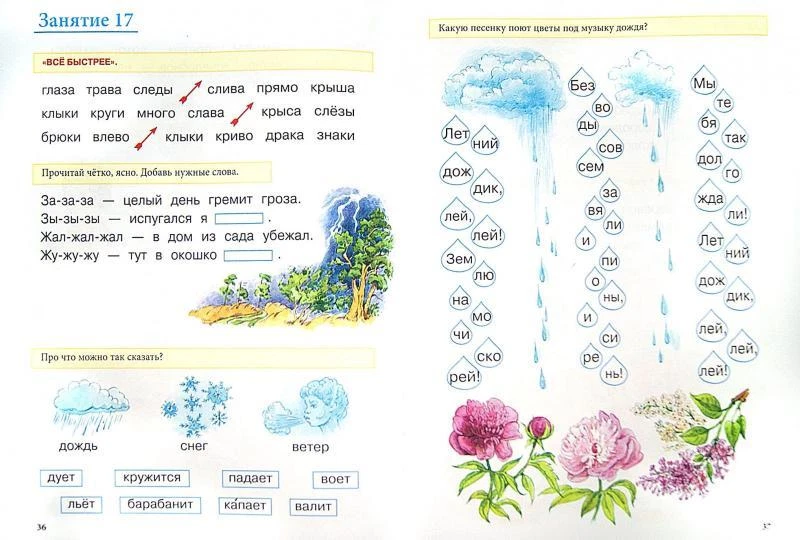 Занятие 17
«ВСЁ БЫСТРЕЕ».
глаза трава следы слива прямо крыша
клыки круги много слава крыса слёзы
брюки влево клыки криво драка знаки
Прочитай чётко, ясно. Добавь нужные слова.
За-за-за — целый день гремит гроза.
Зы-зы-зы — испугался я .
Жал-жал-жал — в дом из сада убежал.
Жу-жу-жу — тут в окошко .
Про что можно так сказать?
дождь снег ветер
дует кружится падает воет
льёт барабанит ка́пает валит
36
Какую песенку поют цветы под музыку дождя?
Лет
ний
дож
дик,
лей,
лей!
Зем
лю
на
мо
чи
ско
рей!
Без
во
ды
сов
сем
за
вя
ли
и
пи
о
ны,
и
си
ре
нь!
Мы
те
бя
так
дол
го
жда
ли!
Лет
ний
дож
дик,
лей,
лей,
лей!